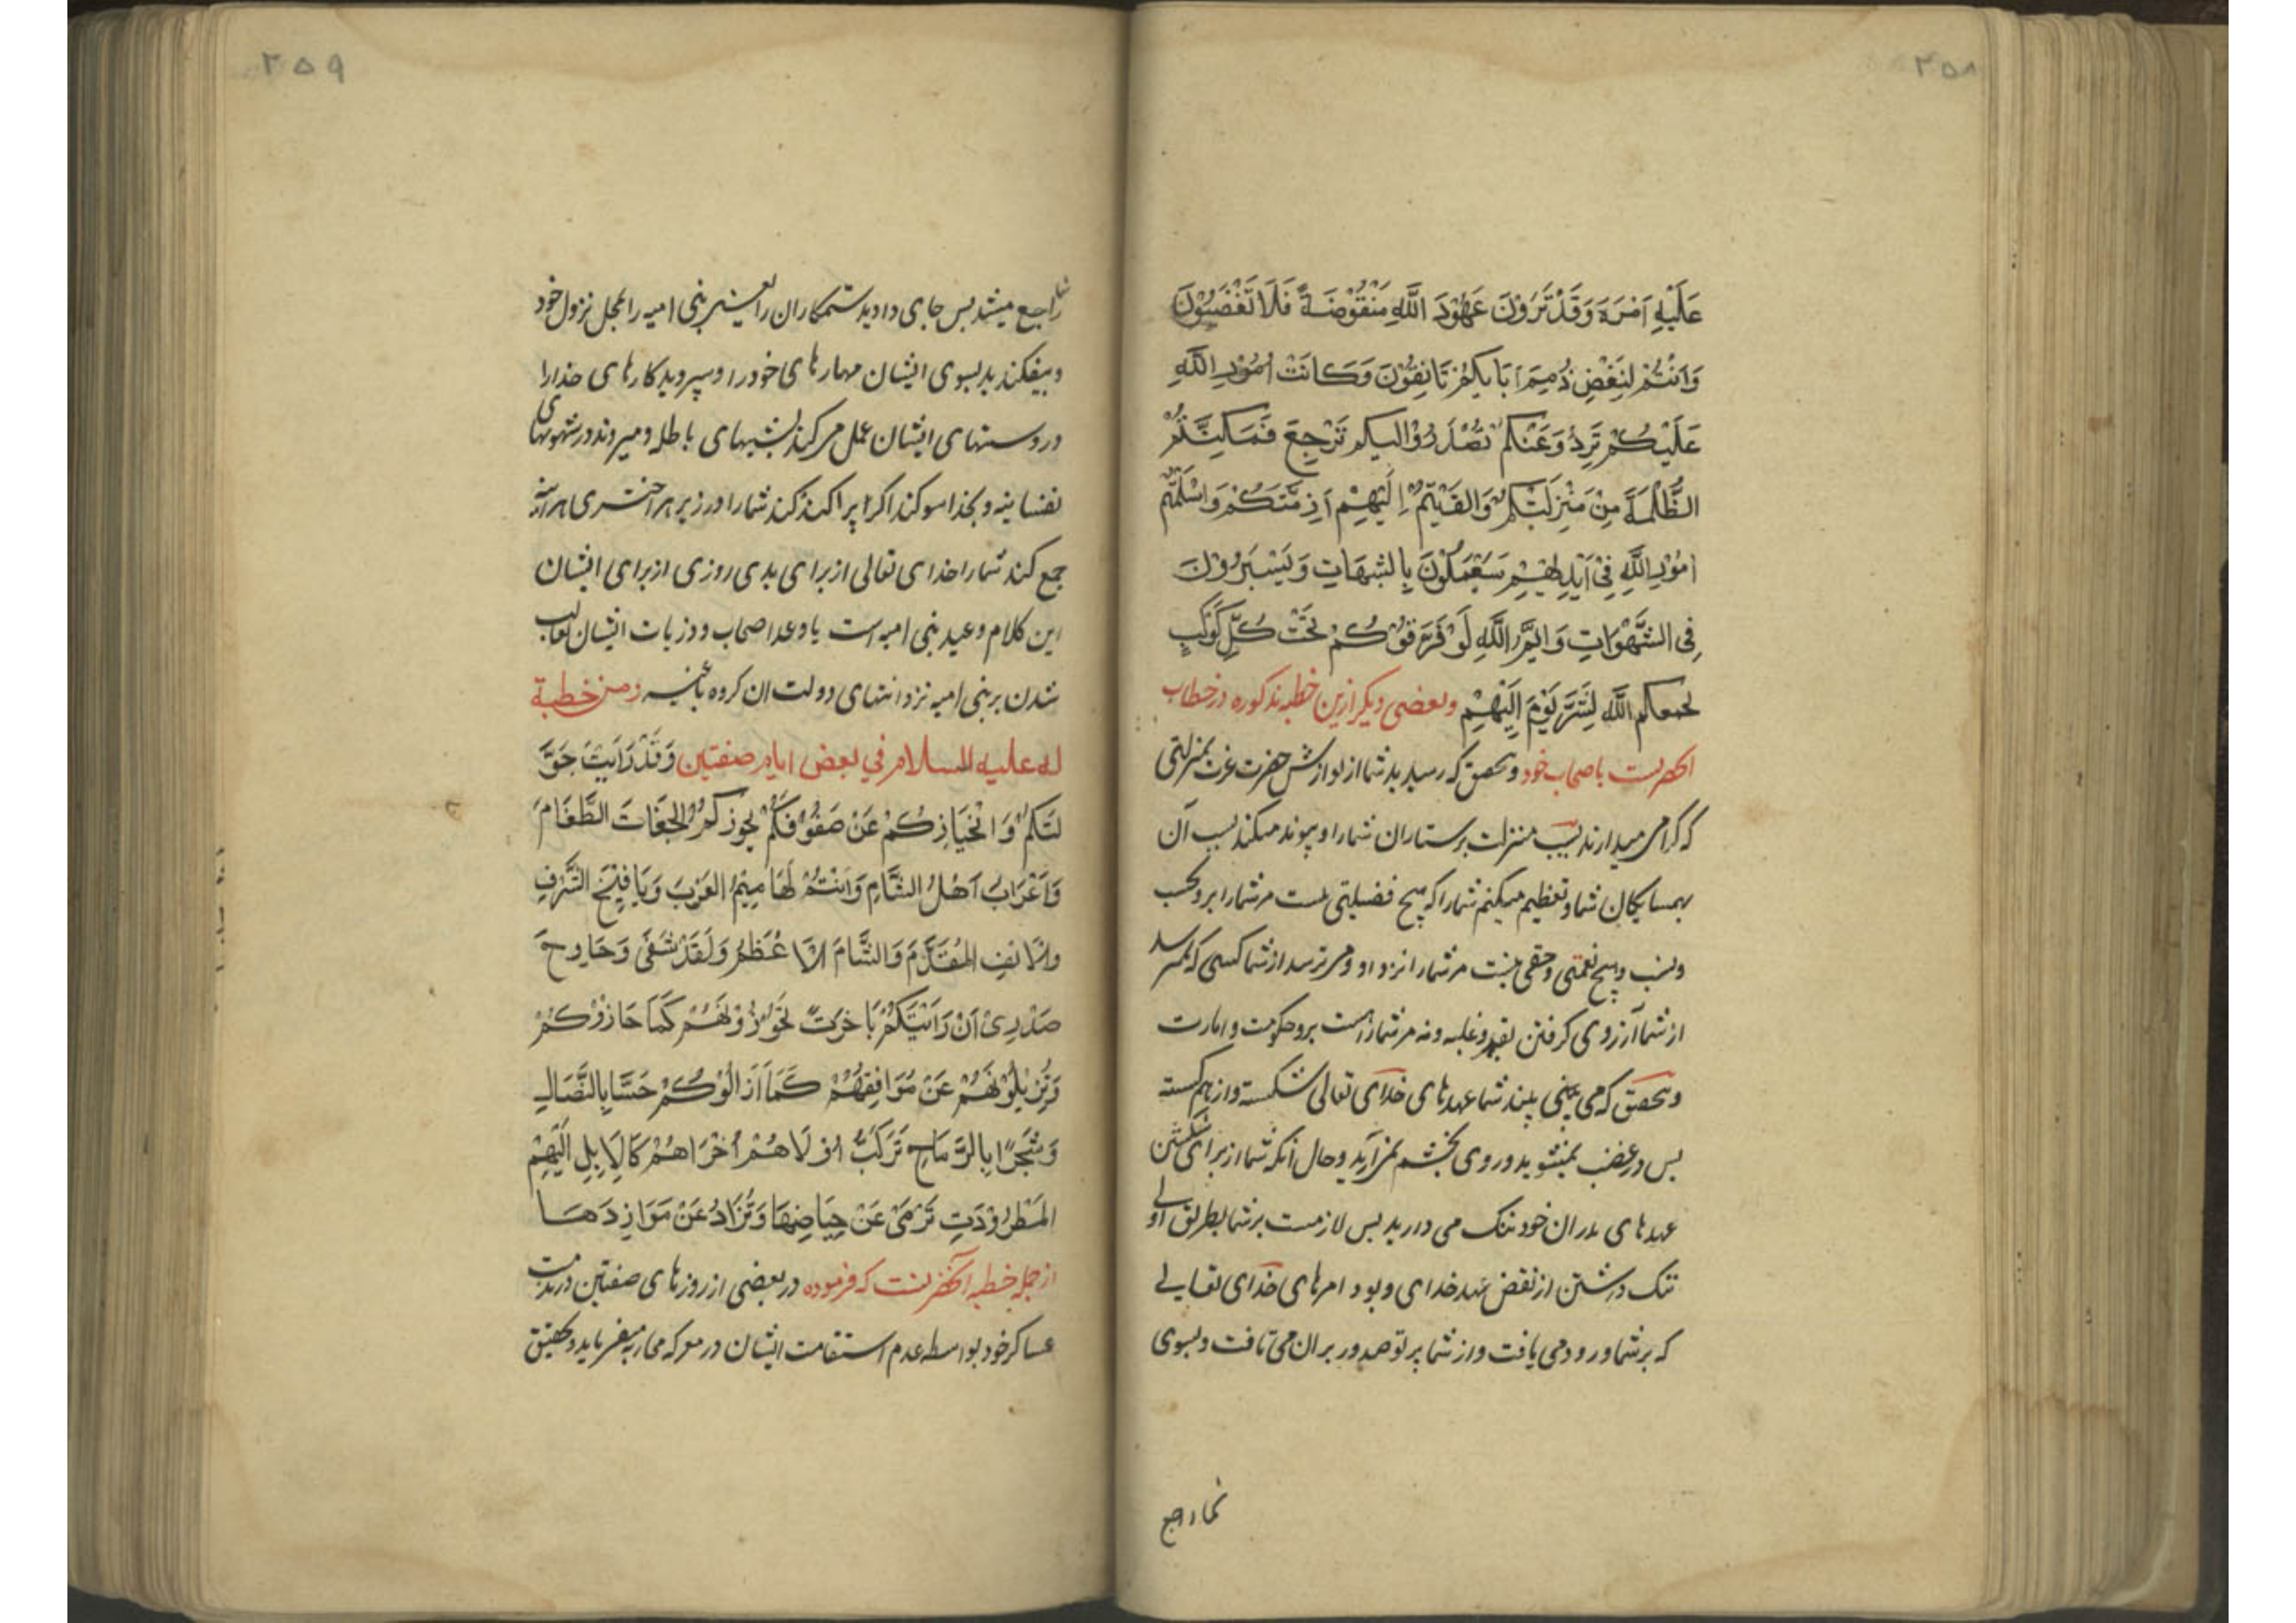 ۲۵۸
عَلَيْهِ اَمْرَهُ وَقَدْ تَرَوْنَ عَهُوْدَ اللَّهِ مَنْقُوْضَةً فَلَا تَغْضَبُوْنَ
وَاَنْتُمْ لِنَغْضِ ذُمِيَمِ اَبَايِكُمْ تَانِفُوْنَ وَكَانَتْ اُمُوْرِ اللَّهِ
عَلَيْكُمْ تَرِدُ وَعَنْكُمْ تَصْدَرُ وَالَيكم تَرْجِعَ فَمَكَنْتُمُ
الظَّلَمَةَ مِنْ مَنْزِلَتِكُمْ وَالقَيْتُمْ اِلَيْهِمْ اَزِمَّتَكُمْ وَاسْلَمْتُمْ
امُوْرِ اللَّهِ فِيْ اَيْدِيْهِمْ يَعْمَلُوْنَ بِالشبهَاتِ وَيَسْيَرُوْنَ
فِي الشَّهْوَاتِ وَايْمُ اللَّهِ لَوْ فَرَّقُوْكُمْ تَحْتَ كُلِّ كَوْكَبٍ
لجمعكم اللَّهُ لِشَرِّ يَوْمَ اِلَيْهِمْ وبعضى ديكر ازين خطبه مذكوره در خطاب
انحضرت باصحاب خود وبتحقيق كه رسيديد شما از نوازش حضرت عزت بمنزلتى
كه كرامى ميدارند بسبب منزلت پرستاران شما را و پيوند ميكند بسبب آن
بهمسايكان شما و تعظيم ميكنم شما را كه هيچ فضيلتى نيست مر شما را بر و بحسب
ونسب و هيچ نعمتى و حقى نيست مر شما را نزد او و مى ترسد از شما كسى كه نميرسد
از شما آرزوى كرفتن بقهر و غلبه و نه مر شما راست برو حكومت و امارت
وبتحقيق كه مى بينى بيند شما عهدهاى خداى تعالى شكسته و از هم كسسته
پس در غضب نميشويد و روى بخشم نمى آريد و حال آنكه شما از براى شكستن
عهدهاى پدران خود ننك مى داريد پس لازمست بر شما بطريق اولى
ننك داشتن از نقض عهد خداى و بود امرهاى خداى تعالى
كه بر شما ورود مى يافت و از شما پرتو صدور بران مى تافت و بسوى
شما راجع
۲۵۹
شما راجع ميشد پس جاى داديد ستمكاران را يعنى بنى اميه را بمحل نزول خود
و بيفكنديد بسوى ايشان مهارهاى خود را و سپرديد كارهاى خدا را
در دستهاى ايشان عمل مى كنند بشبهاى باطله و ميروند در شهوتهاى
نفسانيه و بخدا سوكند اكر پراكنده كند شما را در زير هر اخترى هر آينه
جمع كند شما را خداى تعالى از براى بدى روزى از براى ايشان
اين كلام وعيد بنى اميه است يا وعد اصحاب و دزيات ايشان بغالب
شدن بر بنى اميه نزد انتهاى دولت ان كروه باغيه ومن خطبة
له عليه السلام في بعض ايام صفتين وَقَدْ رَاَيْتَ جَوَّ
لتَكم وَانْحَيَازِكُمْ عَنْ صَفُوْفَكُمْ يحوزكُمْ الجَفَاتَ الطَّغَامَ
وَاَعْرَابُ اَهْلُ الشَّامِ وَاَنْتُمْ لَهَامِيْمُ العَرَبَ وَيَافِيْخَ الشَّرَفِ
والاَنفِ المُقَدَّمَ وَالسَّنَامَ الاَعْظَمُ وَلَقَدْ شَفَى وَحَاوِحَ
صَدْرِيْ اَنْ رَاَيْتَكُمْ بَاخَرَتٍ تحُوْزُوْنَهُمْ كَمَا حَازُوْكُمْ
وَتُزِيْلُوْنَهُمْ عَنْ مَوَاقِفِهُمْ كَمَا اَزَالُوْكُمْ حَسًّا بِالنَّصَالِ
وَشَجَرًا بِالرَّمَاحِ تَرْكَبُ اُوْلَاهُمْ اُخْرَاهُمْ كَالاِبِلِ الْهِيْمْ
المَطْرُوْدَتِ تَرْمَىْ عَنْ حِيَاضِهَا وَتُزَادُ عَنْ مَوَارِدَهَا
از جمله خطبه آنحضرتست كه فرموده در بعضى از روزهاى صفتين در مذمت
عساكر خود بواسطه عدم استقامت ايشان در معركه محاربه ميفرمايد و بتحقيق